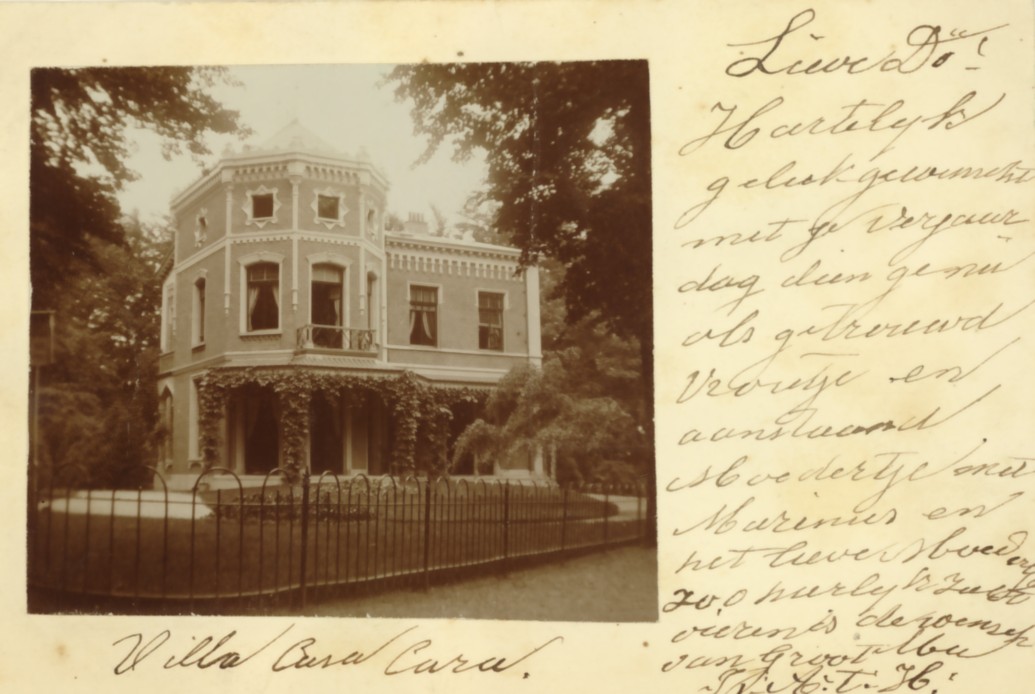 Lieve Do!
Hartelyk
geluk gewenscht
met je verjaar
dag dien ge nu
als getrouwd
Vrouwtje en
aanstaand
Moedertje met
Marinus en
het lieve Moedertje
zoo
vieren is de wensch
van Groot Ma
A. T. H.
Villa Casa Cara.